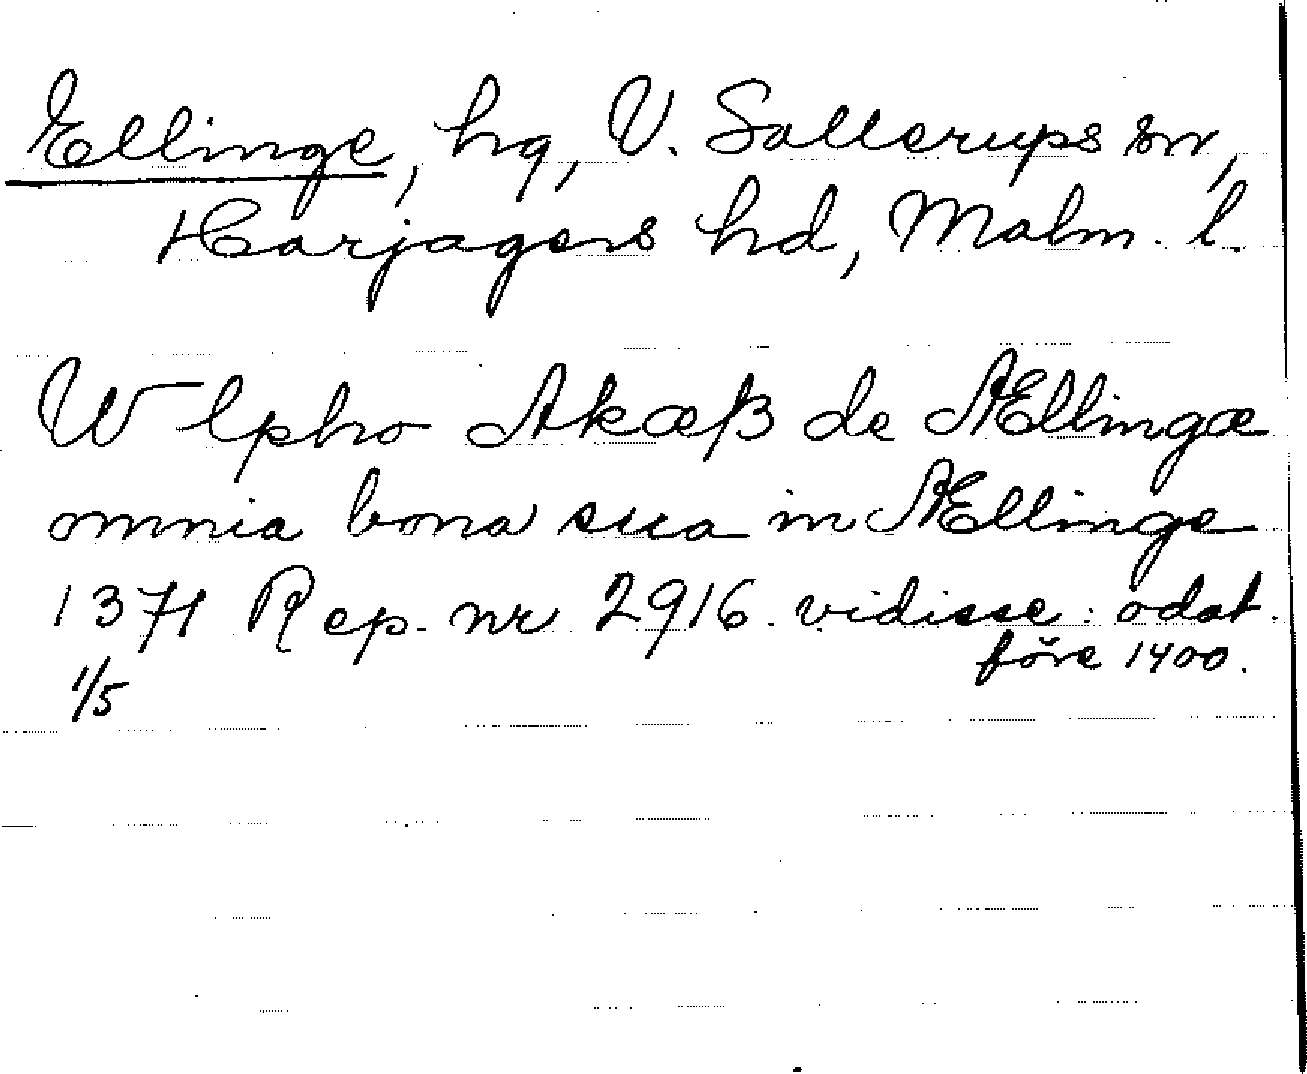 Ellinge, hg, V. Sallerups sn,
Harjagers hd, Malm. l.
Wlpho Akæß de Ællingæ
omnia bona sua in Ællinge
1371 Rep. nr 2916. vidisse: odat.
före 1400.
1/5